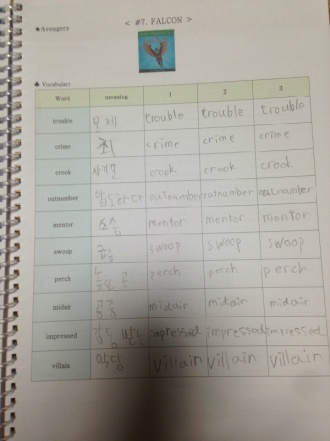 < #7. FALCON >
★Avengers
♣ Vocabulary
Word meaning 1 2 3
trouble 문제 trouble trouble trouble
crime 죄 crime crime crime
crook 사기꾼 crook crook crook
outnumber outnumber outnumber outnumber
mentor 스승 mentor mentor mentor
swoop 급습 swoop swoop swoop
perch perch perch perch
midair 공중 midair midair midair
impressed impressed impressed impressed
villain 악당 villain villain villain